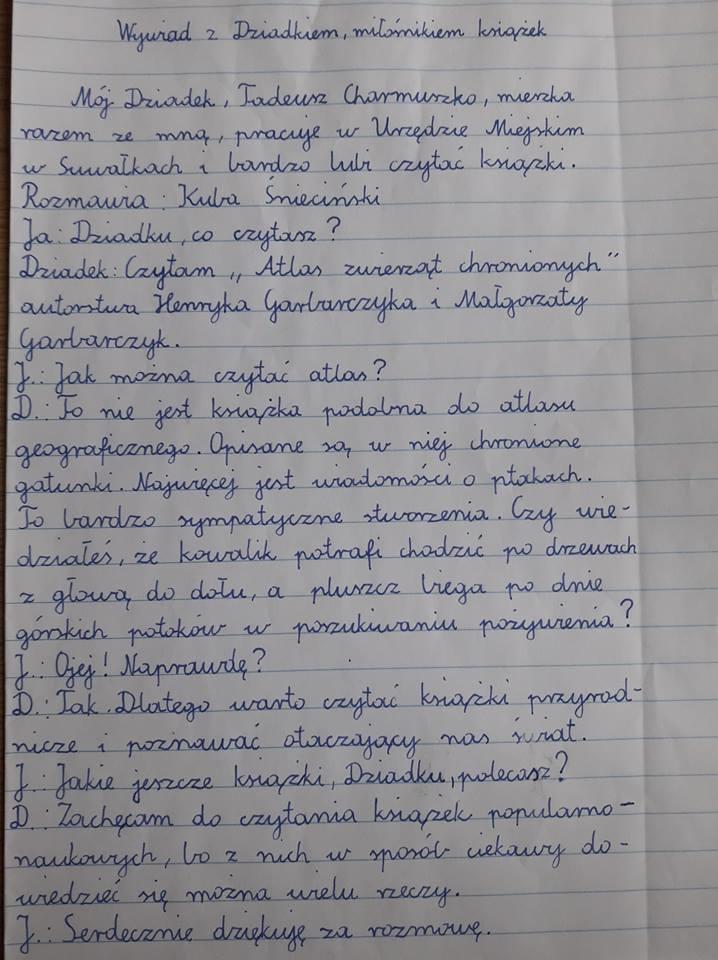 Wywiad z Dziadkiem, miłośnikiem książek
Mój Dziadek, Tadeusz Charmuszko, mieszka
razem ze mną, pracuje w Urzędzie Miejskim
w Suwałkach i bardzo lubi czytać książki.
Rozmawia: Kuba Śnieciński
Ja: Dziadku, co czytasz?
Dziadek: Czytam „Atlas zwierząt chronionych"
autorstwa Henryka Garbarczyka i Małgorzaty
Garbarczyk.
J.: Jak można czytać atlas?
D.: To nie jest książka podobna do atlasu
geograficznego. Opisane są w niej chronione
gatunki. Najwięcej jest wiadomości o ptakach.
To bardzo sympatyczne stworzenia. Czy wie-
działeś, że kowalik potrafi chodzić po drzewach
z głową do dołu, a pluszcz biega po dnie
górskich potoków w poszukiwaniu pożywienia?
J.: Ojej! Naprawdę?
D.: Tak. Dlatego warto czytać książki przyrod-
nicze i poznawać otaczający nas świat.
J.: Jakie jeszcze książki, Dziadku, polecasz?
D.: Zachęcam do czytania książek popularno-
naukowych, bo z nich w sposób ciekawy do-
wiedzieć się można wielu rzeczy.
J.: Serdecznie dziękuję za rozmowę.